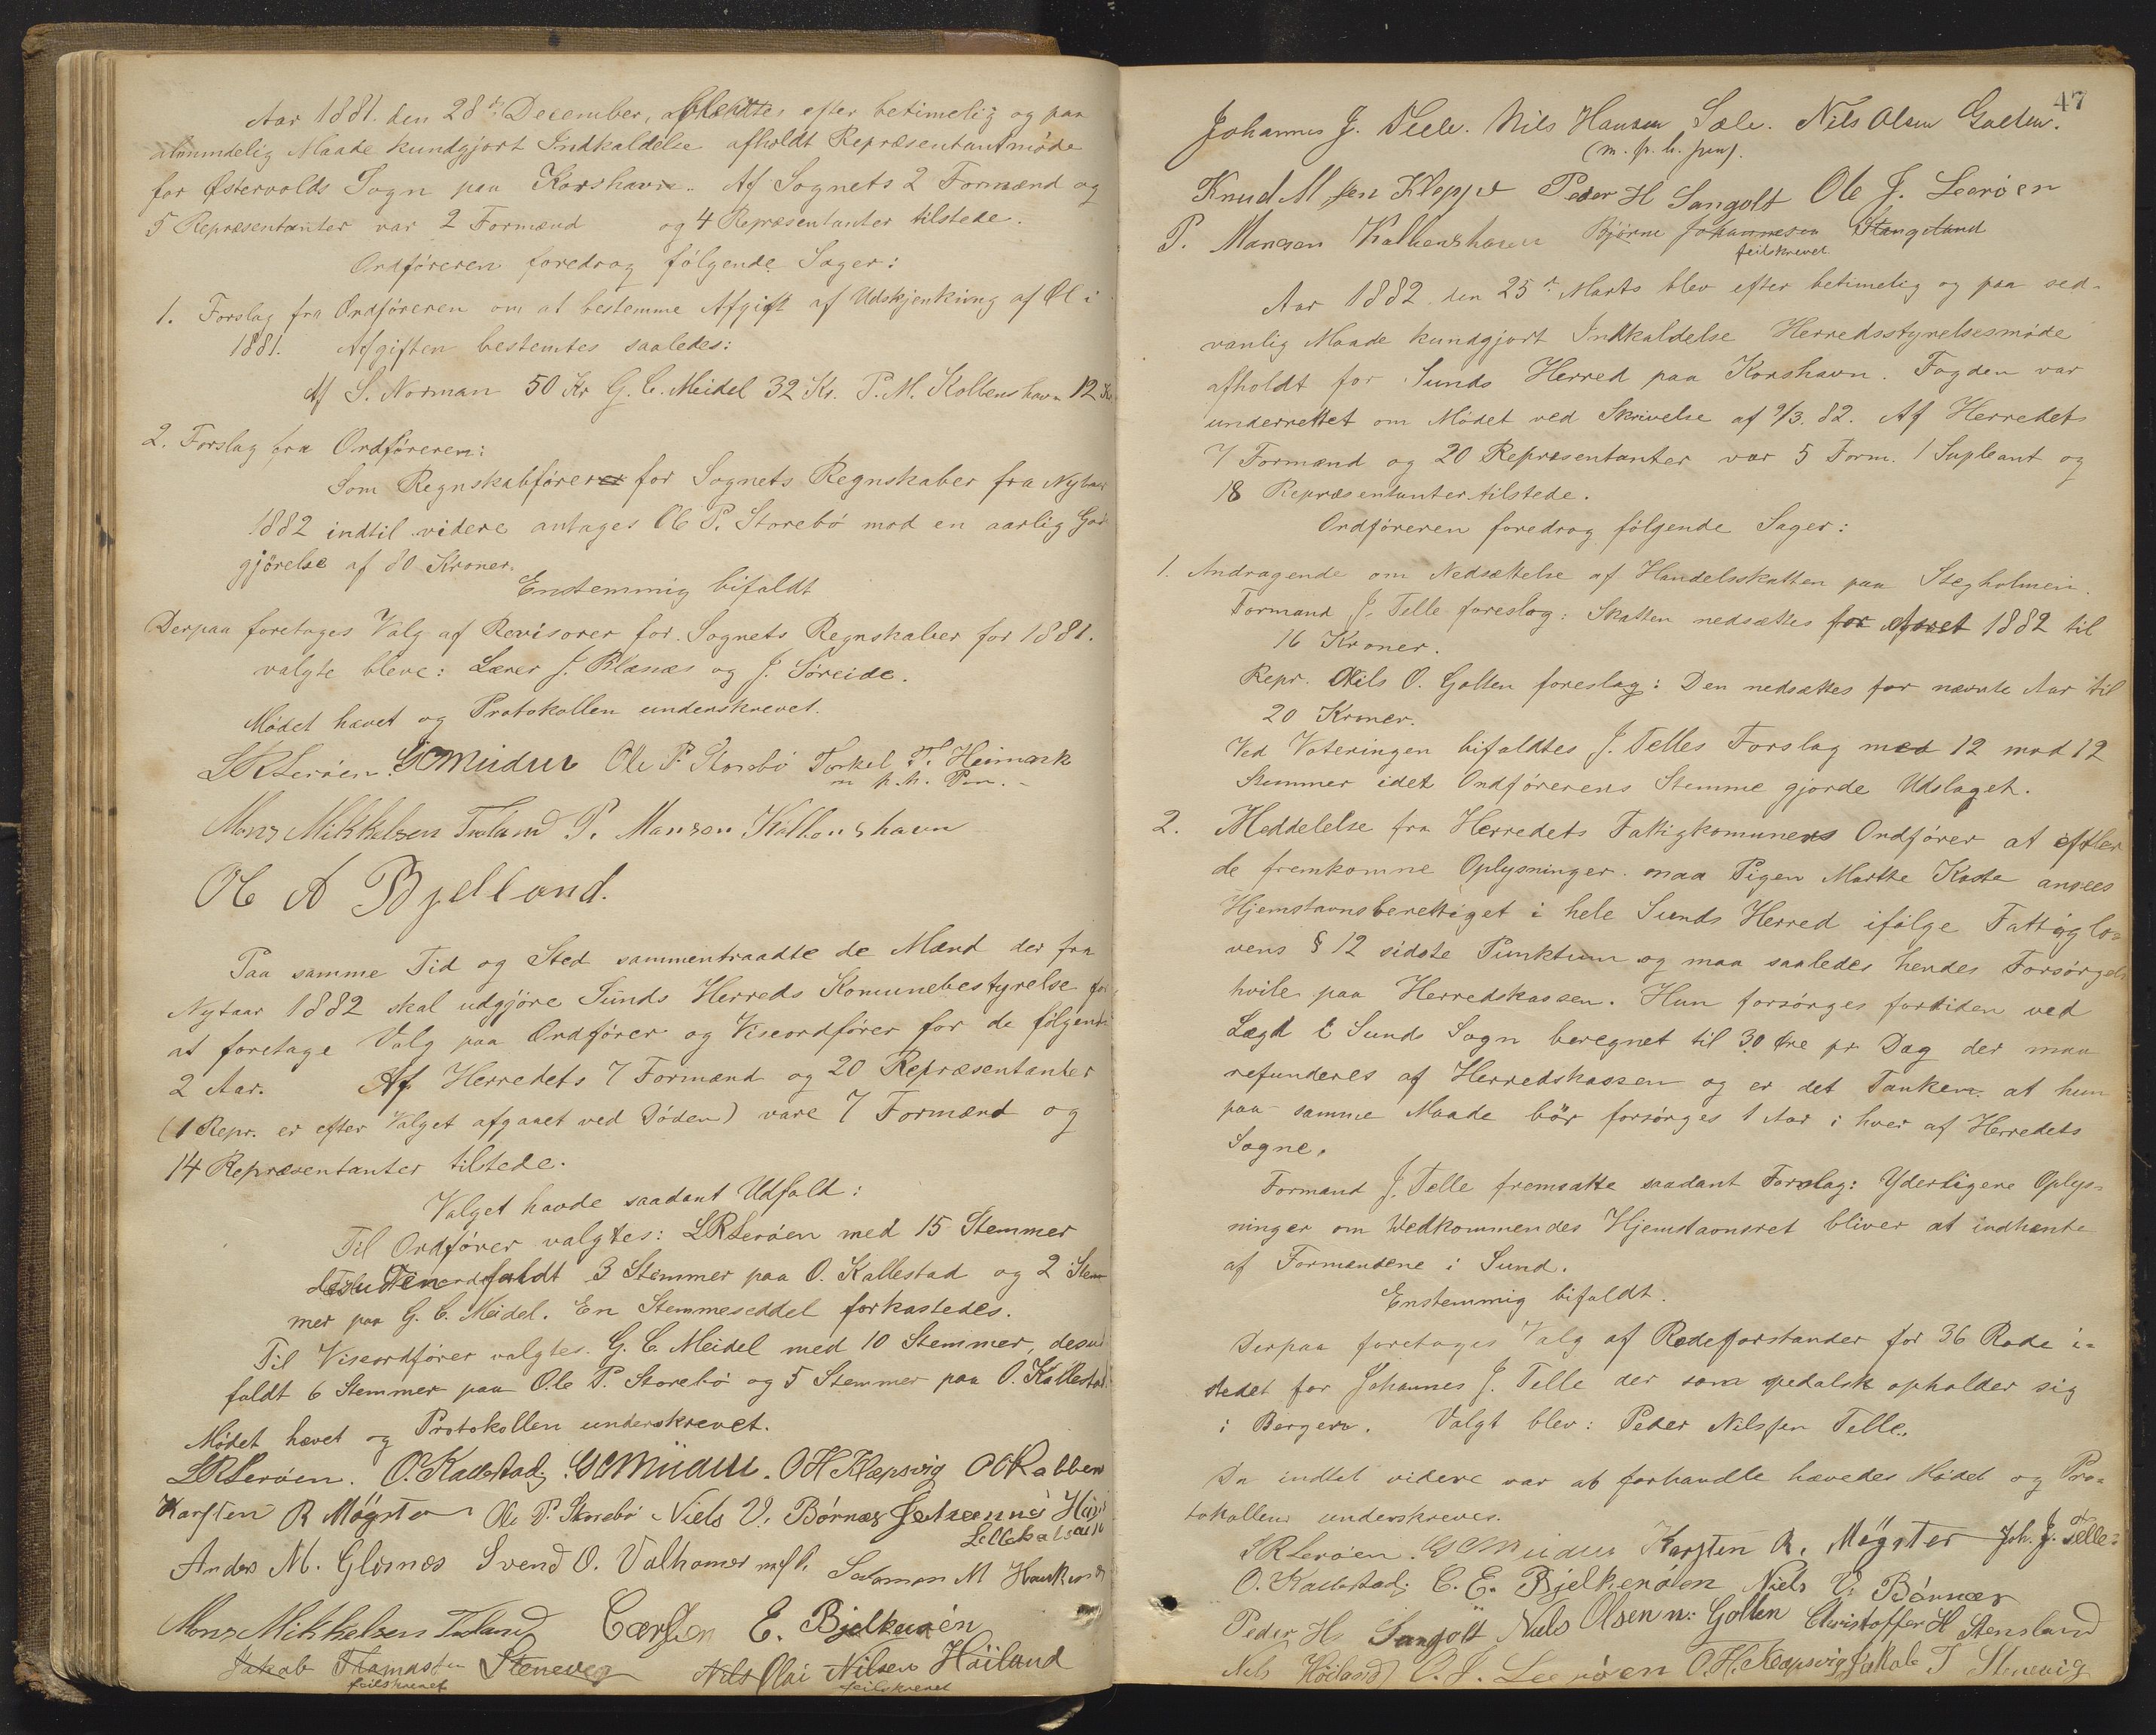 Aar 1881. den 28de December, efter betimelig og paa
almindelig Maade kundgjort Indkaldelse afholdt Repræsentantmøde
for Østervolds Sogn paa Korshavn. Af Sognets 2 Formænd og
5 Repræsentanter var 2 Formænd og 4 Repræsentanter tilstede.
Ordføreren foredrog følgende Sager:
1. Forslag fra Ordføreren om at bestemme Afgift af Udskjenkning af Øl i
1881. Afgiften bestemtes saaledes:
Af S. Norman 50 Kr G. C. Meidel 32 Kr. P. M. Kolbenshavn 12 Kr
2. Forslag fra Ordføreren:
Som Regnskabfører for Sognets Regnskaber fra Nytaar
1882 indtil videre antages Ole P. Storebø mod en aarlig God
gjörelse af 80 Kroner.
Enstemmig bifaldt
Derpaa foretoges Valg af Revisorer for Sognets Regnskaber for 1881.
valgte bleve: Lærer J. Blænæs og J. Søreide.
Mødet hævet og Protokollen underskrevet.
L R Lerøen. G C Meidell Ole P. Storebø Torkel T. Heimark
m p. h. Pen.
Mons Mikkelsen Træland P. Manson Kalbenshavn
Ole A Bjelland.
Paa samme Tid og Sted sammentraadte de Mænd der fra
Nytaar 1882 skal udgjöre Sunds Herreds Komunebestyrelse for
at foretage Valg paa Ordfører og Viseordfører for de følgende
2 Aar. Af Herredets 7 Formænd og 20 Repræsentanter
(1 Repr. er efter Valget afgaaet ved Døden) vare 7 Formænd og
14 Repræsentanter tilstede.
Valget havde saadant Udfald:
Til Ordfører valgtes: L R Lerøen med 15 Stemmer
desuden faldt 3 Stemmer paa O. Kallestad og 2 Stem
mer paa G. C. Meidel. En Stemmeseddel forkastedes.
Til Viseordfører valgtes G. C. Meidel med 10 Stemmer, desud
faldt 6 Stemmer paa Ole P. Storebø og 5 Stemmer paa O. Kallestad
Mødet hævet og Protokollen underskrevet.
L R Lerøen. O. Kallestad. G C Meidell. O H Klepsvig O O Rabben
Karsten R Møgster Ole P. Storebø Niels V. Børnæs Johannes
Lillekalsøen
Anders M. Glesnæs Svend O. Valhamer Salamon M Haukenæs
Mons Mikkelsen Træland Carsten E. Bjelkerøen
Jakob Thomassen Stenevig Nils Olai Nilsen Høiland
feilskrevet feilskrevet
47
Johannes J. Telle. Nils Hansen Sæle. Nils Olsen Golten.
(m. p. h. pen).
Knud M sen Kleppe Peder H Sangolt Ole J. Leerøen
P. Manson Kalbenshavn Bjørne Johannesen Stangeland
feilskrevet
Aar 1882 den 25de Marts blev efter betimelig og paa sed-
vanlig Maade kundgjort Indkaldelse Herredsstyrelsesmøde
afholdt for Sunds Herred paa Korshavn. Fogden var
underrettet om Mødet ved Skrivelse af 9/3. 82. Af Herredets
7 Formænd og 20 Repræsentanter var 5 Form. 1 Supleant og
18 Repræsentanter tilstede.
Ordføreren foredrog følgende Sager:
1. Andragende om Nedsættelse af Handelsskatten paa Stegholmen.
Formand J. Telle foreslog: Skatten nedsættes for Aaret 1882 til
16 Kroner.
Repr. Nils O. Golten foreslog: Den nedsættes for nævnte Aar til
20 Kroner.
Ved Voteringen bifaldtes J. Telles Forslag med 12 mod 12
Stemmer idet Ordførerens Stemme gjorde Udslaget.
2. Meddelelse fra Herredets Fattigkomunens Ordfører at efter
de fremkomne Oplysninger maa Pigen Marthe Kaste ansees
Hjemstavnsberettiget i hele Sunds Herred ifølge Fattiglo-
vens § 12 sidste Punktum og maa saaledes hendes Forsørgelse
hvile paa Herredskassen. Hun forsørges fortiden ved
Lægd i Sunds Sogn beregnet til 30 Øre pr Dag der maa
refunderes af Herredskassen og er det Tanken at hun
paa samme Maade bör forsørges 1 Aar i hver af Herredets
Sogne.
Formand J. Telle fremsatte saadant Forslag: Yderligere Oplys-
ninger om Vedkommendes Hjemstavnsret bliver at indhente
af Formændene i Sund.
Enstemmig bifaldt.
Derpaa foretoges Valg af Rodeforstander for 36 Rode i-
stedet for Johannes J. Telle der som spedalsk opholder sig
i Bergen. Valgt blev: Peder Nilssen Telle.
Da indtil videre var at forhandle hævedes Mødet og Pro-
tokollen underskreves.
L R Lerøen. G C Meidell Karsten R. Møgster Joh. J. Telle
O. Kallestad. C. E. Bjelkerøen Niels V. Børnæs
Peder H Sangolt Nils Olsen n: Golten Christoffer H Stensland
Nils Høiland O. J. Leerøen O. H. Klepsvig Jakob T Stenevig